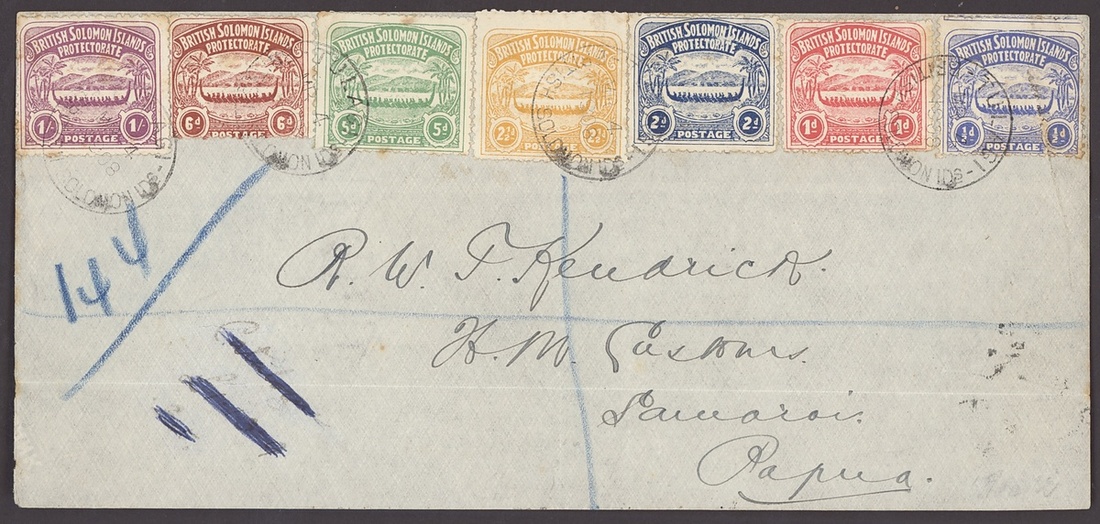 BRITISH SOLOMON ISLANDS PROTECTORATE 1/- 1/- POSTAGE
BRITISH SOLOMON ISLANDS PROTECTORATE 6d 6d POSTAGE
BRITISH SOLOMON ISLANDS PROTECTORATE 5d 5d POSTAGE
BRITISH SOLOMON ISLANDS PROTECTORATE 2½d 2½d POSTAGE
BRITISH SOLOMON ISLANDS PROTECTORATE 2d 2d POSTAGE
BRITISH SOLOMON ISLANDS PROTECTORATE 1d 1d POSTAGE
BRITISH SOLOMON ISLANDS PROTECTORATE ½d ½d POSTAGE
144
R. W. T. Kendrick.
H. M. Customs.
Samarai.
Papua.